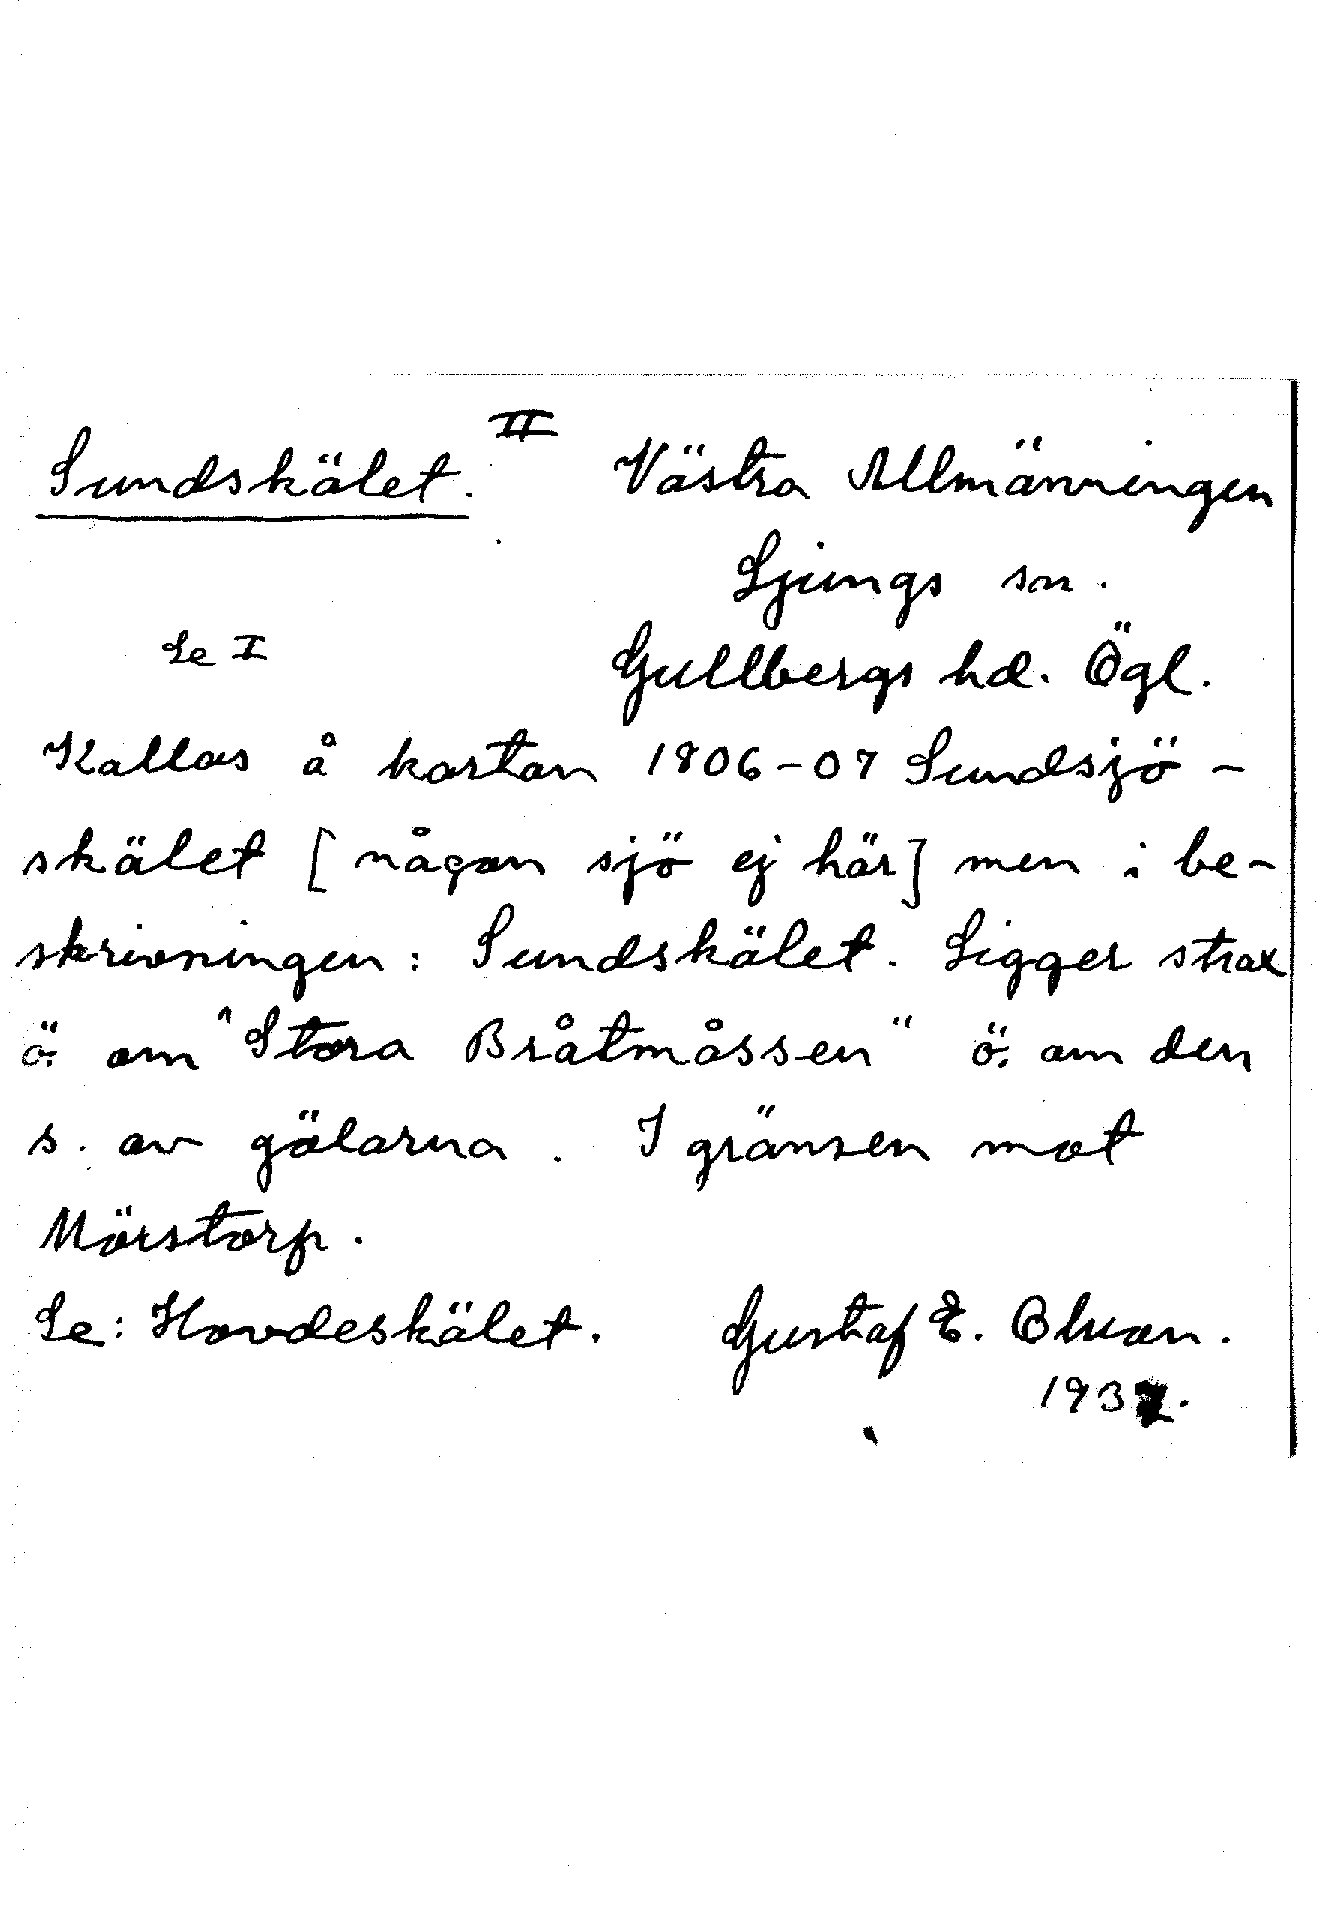 Sundskälet. II Västra Allmänningen
Ljungs sn.
Se I Gullbergs hd. Ögl.
Kallas å kartan 1806-07 Sundsjö-
skälet [någon sjö ej här] men i be-
skrivningen: Sundskälet. Ligger strax
ö. om "Stora Bråtmåssen" ö. om den
s. av gölarna. I gränsen mot
Mörstorp.
Se: Hovdeskälet. Gustaf E.